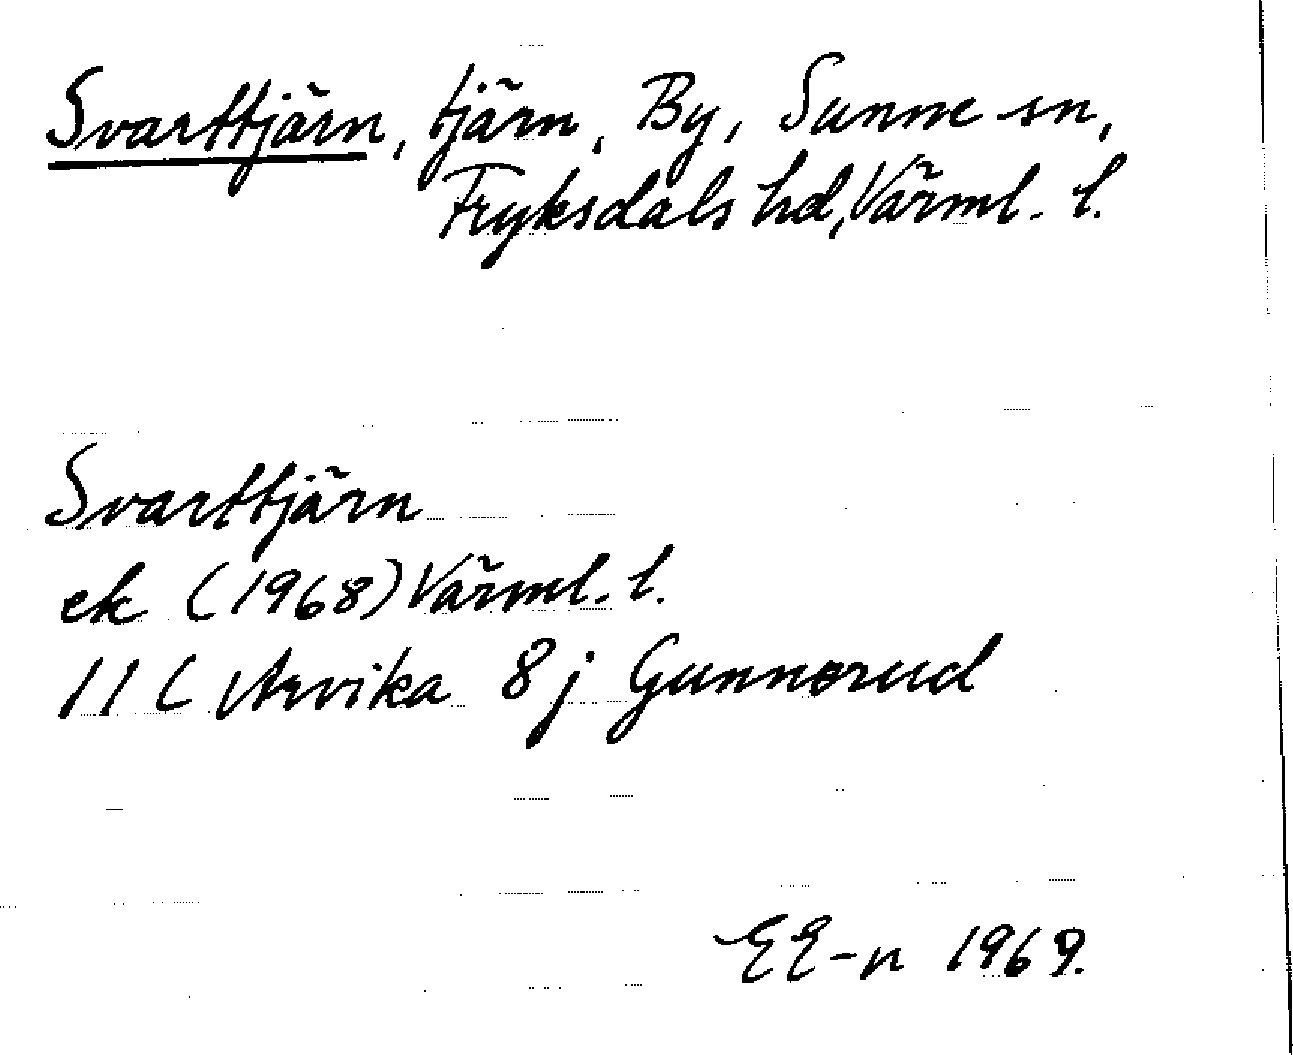 Svarttjärn, tjärn, By, Sunne sn,
Fryksdals hd, Värml. l.
Svarttjärn
ek (1968) Värml. l.
11 C Arvika 8 j Gunnerud
EE-n 1969.